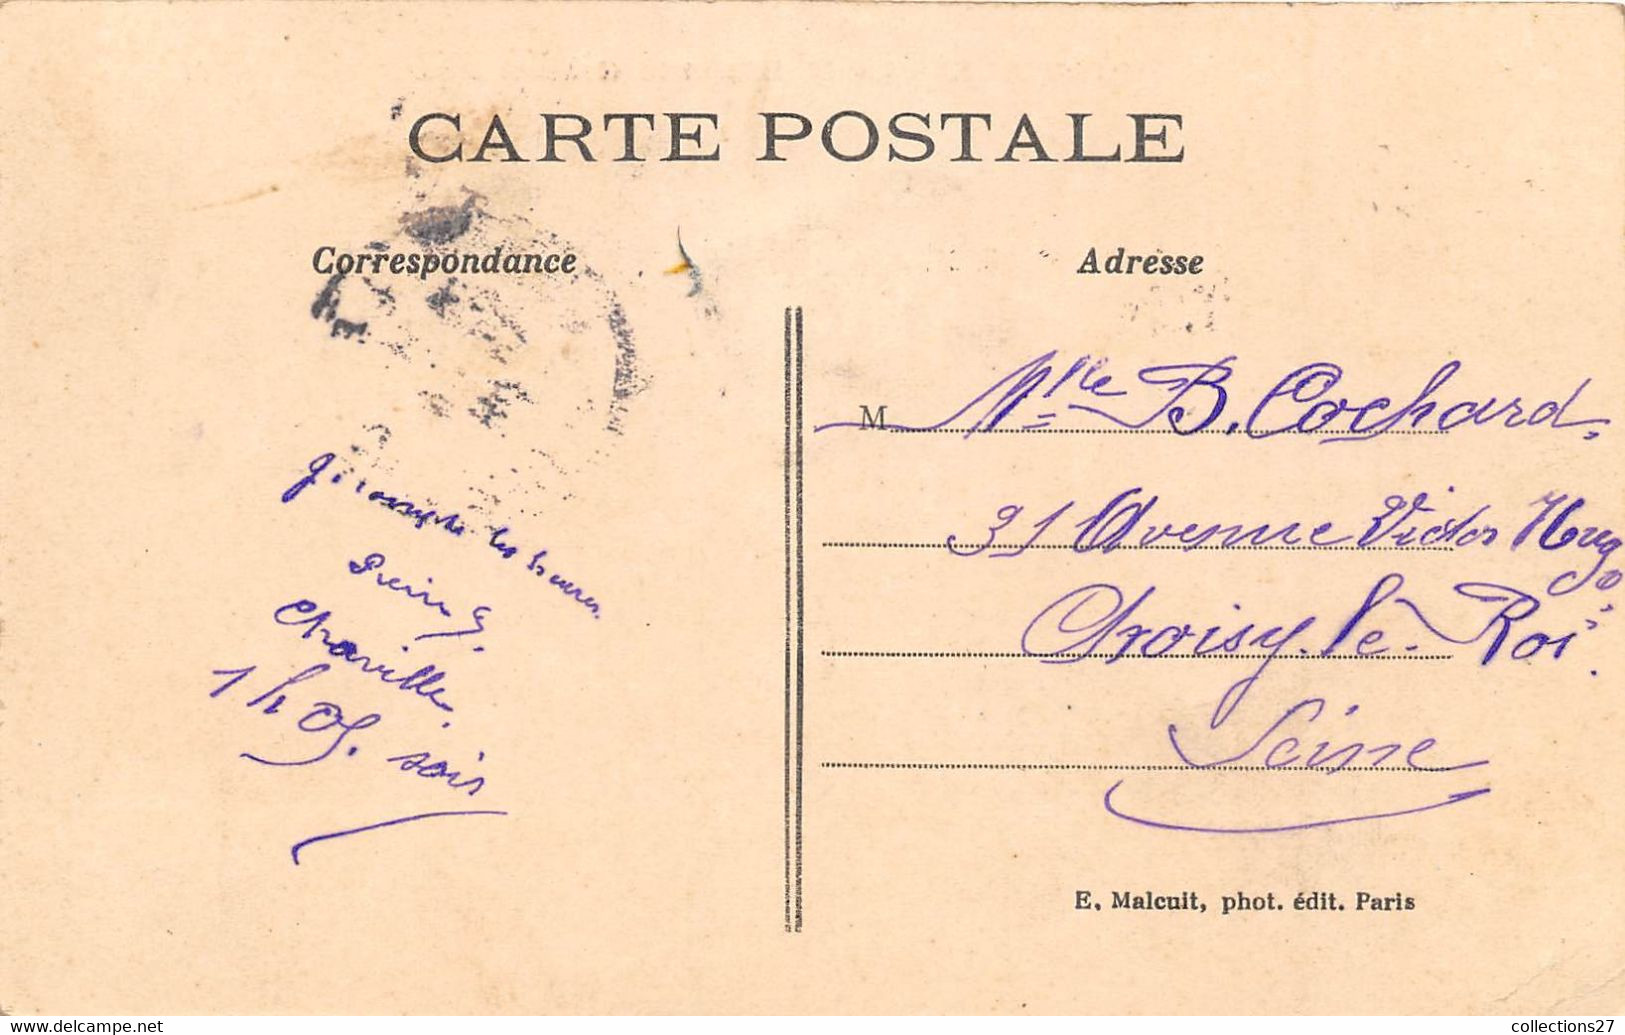 CARTE POSTALE
Correspondance
les heures.
Chaville.
1 h 05. soir
Adresse
M Mlle B. Cochard,
31 Avenue Victor Hugo,
Choisy-le-Roi.
Seine
E. Malcuit, phot. édit. Paris
www.delcampe.net
collections27